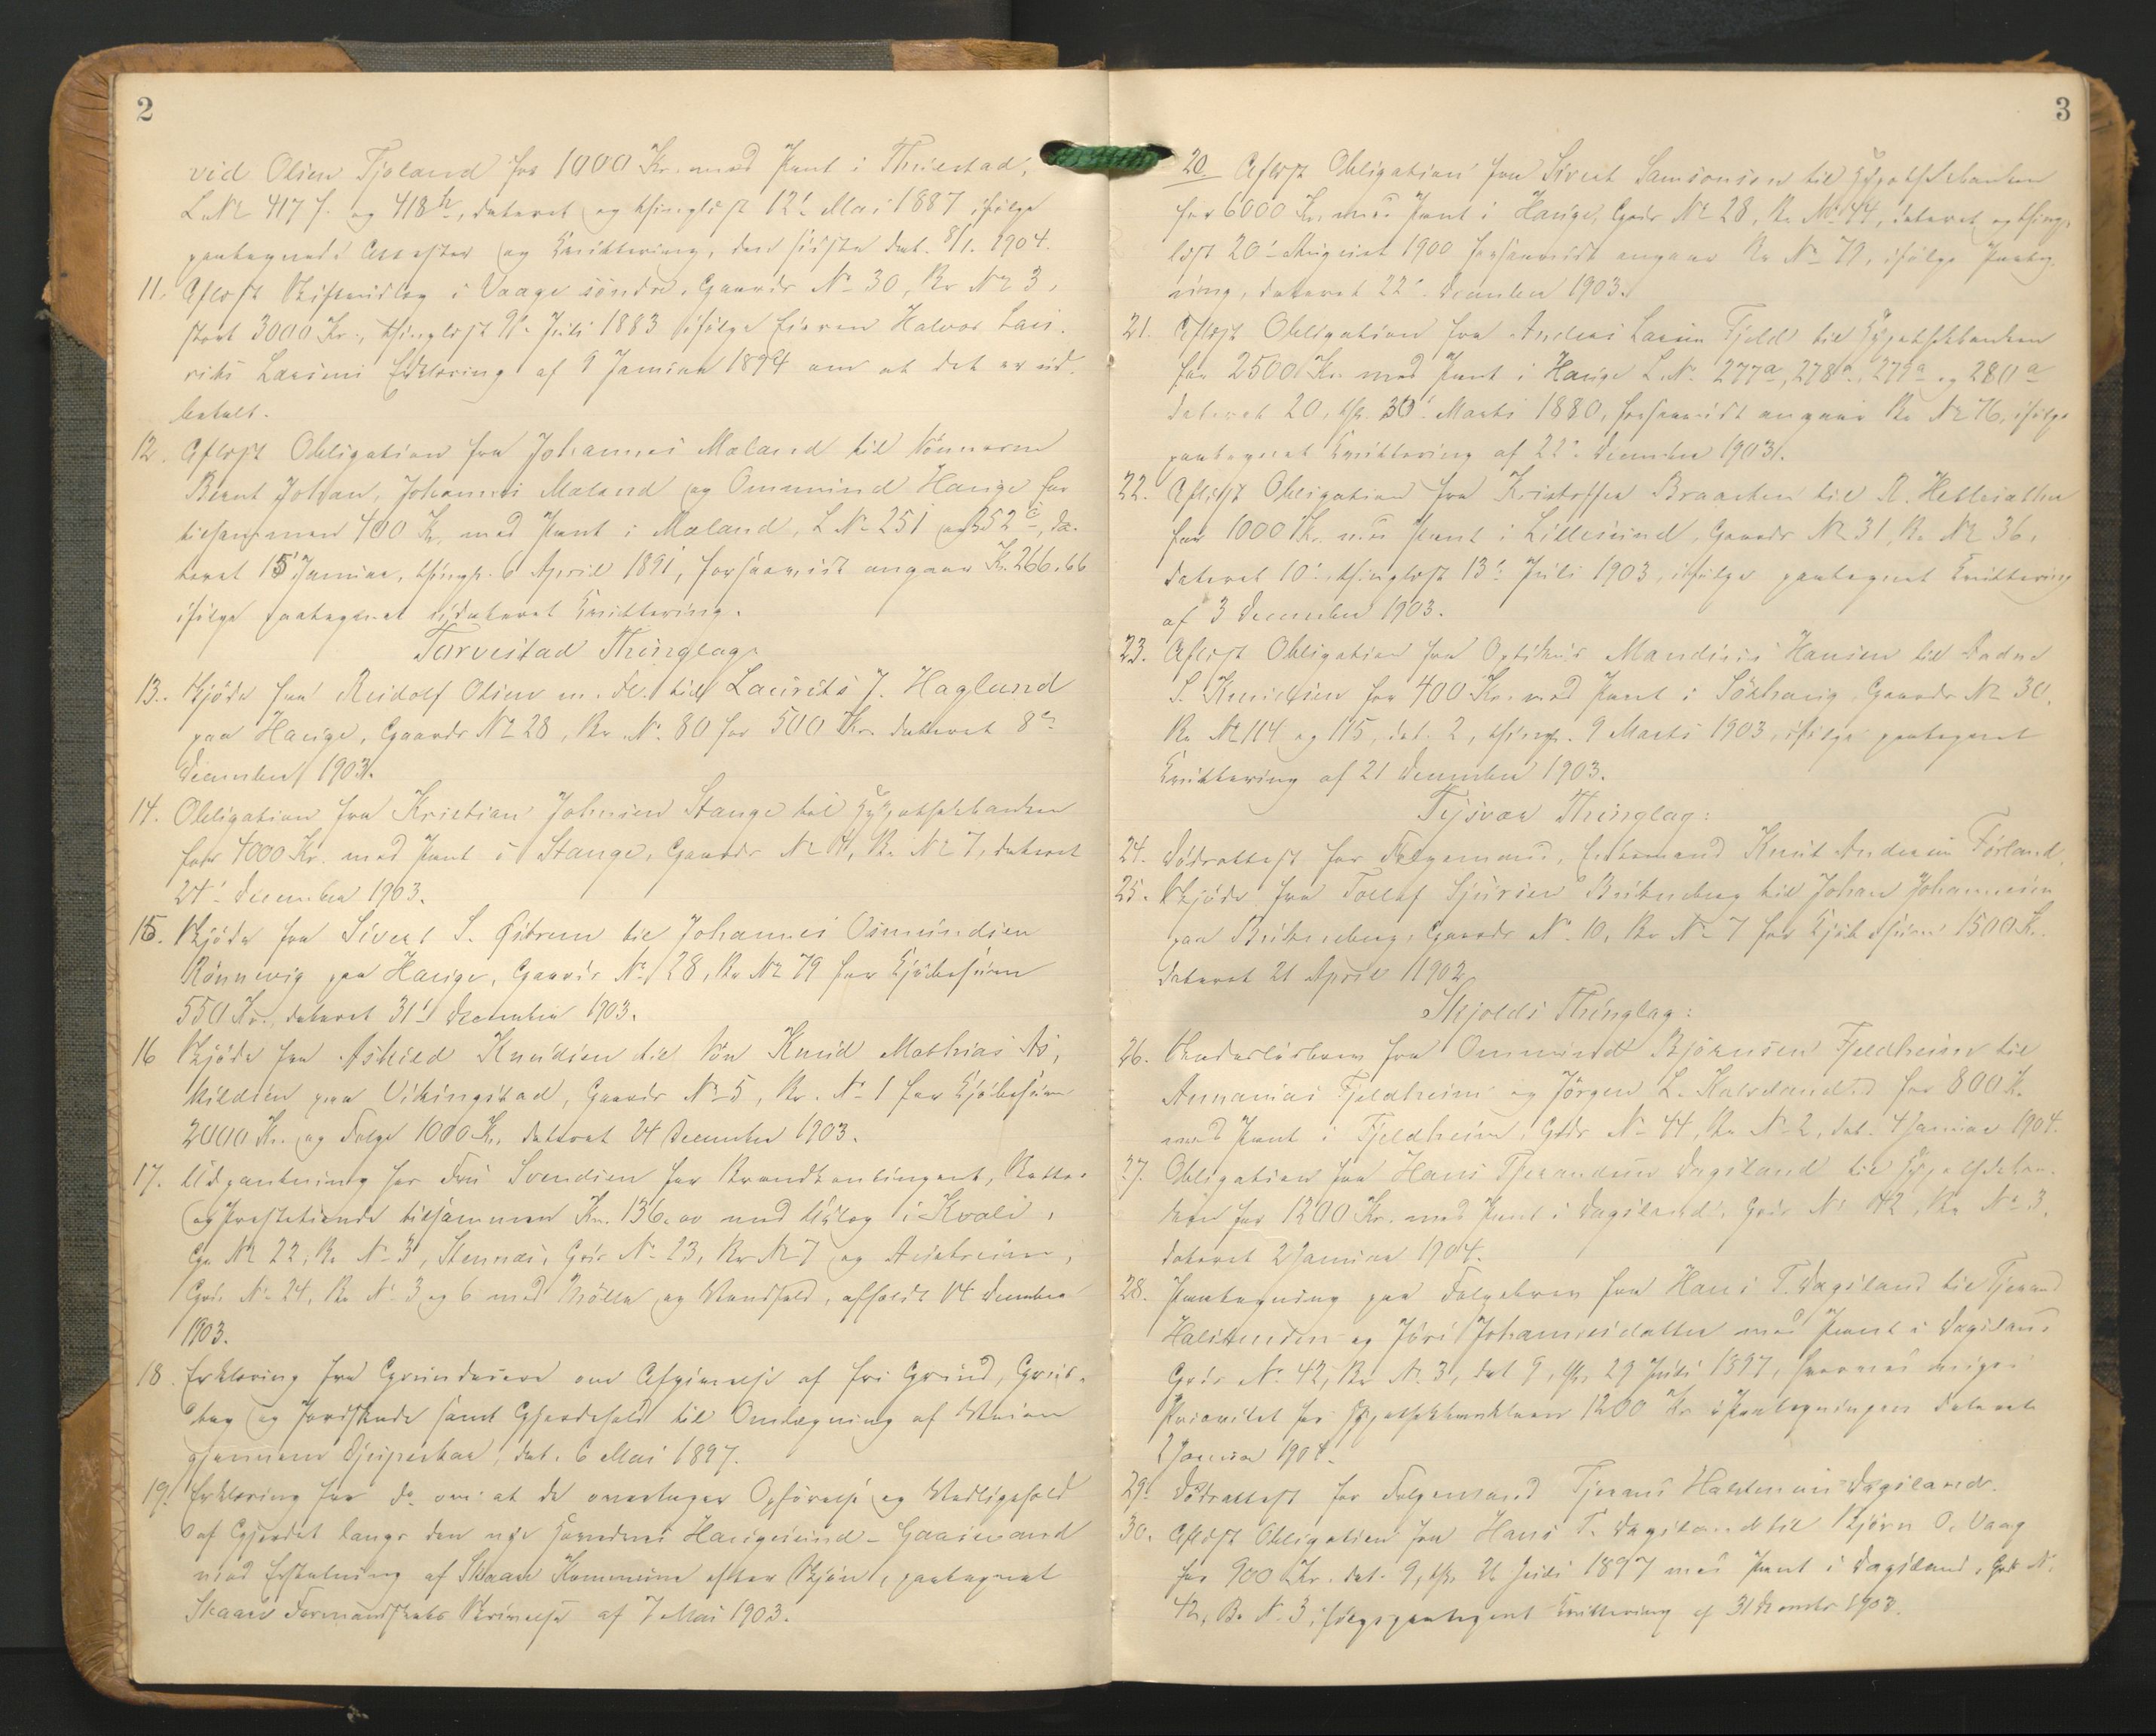 2
vid Olsen Tjoland for 1000 Kr. med Pant i Thuestad,
L. No 417 f. og 418 b, dateret og thinglæst 12' Mai 1887 ifølge
paategnede Attester og Kvittering, den sidste dat. 8/1. 1904.
11. Aflyst Skifteudlæg i Vaage søndre, Gaards No 30, Br No 3,
stort 3000 Kr., thinglæst Juli 1883 ifølge Eieren Halvor Lau-
rits Larsens Erklæring af 9 Januar 1894 om at det er ud-
betalt.
12. Aflyst Obligation fra Johannes Mæland til Sønnerne
Bernt Johan, Johannes Mæland og Ommund Hauge for
tilsammen 400 Kr. med Pant i Mæland, L No 251 og 252 c, da-
teret 15 Januar, thingl. 6 April 1891, forsaavidt angaar Kr. 266.66
ifølge paategnet udateret Kvittering.
Torvestad Thinglag:
13. Skjøde fra Rudolf Olsen m. Fl. til Laurits J. Haglund
paa Hauge, Gaards No 28, Br. No. 80 for 500 Kr. dateret 8de
December 1903.
14. Obligation fra Kristian Johnsen Stange til Hypothekbanken
for 4000 Kr. med Pant i Stange, Gaards No 4, Br. No 7, dateret
24' December 1903.
15. Skjøde fra Sivert S. Østrem til Johannes Osmundsen
Rønnevig paa Hauge, Gaards No 28, Br No 79 for Kjøbesum
550 Kr., dateret 31' December 1903.
16 Skjøde fra Askild Knudsen til Søn Knud Mathias As-
kildsen paa Vikingstad, Gaards No 5, Br. No 1 for Kjøbesum
2000 Kr. og Folge 1000 Kr. dateret 24 December 1903.
17. Udpantning hos Fru Svendsen for Brandkontingent, Skatter
og Prestetiende tilsammen Kr. 136.00 med Udlæg i Kvale,
Gr No 22, Br No 3, Stemnes, Grds No 23, Br No 7 og Austreim,
Grds. No 24, Br No 3 og 6 med Mølle og Vandfald, afholdt 14 December
1903.
18. Erklæring fra Grundeiere om Afgivelse af fri Grund, Grus-
tag og Jordskade samt Gjerdehold til Omlægning af Veien
gjennem Djupeskar, dat. 6 Mai 1897.
19. Erklæring fra do om at de overtager Opførelse og Vedligehold
af Gjerdet langs den nye Hovedvei Haugesund - Gaasevand
mod Erstatning af Skaare Kommune efter Skjøn, paategnet
Skaare Formandskabs Skrivelse af 7 Mai 1903.
3
20. Aflyst Obligation fra Sivert Samsonsen til Hypothekbanken
for 6000 Kr. med Pant i Hauge, Grds No 28, Br No 44, dateret og thing-
læst 20' August 1900 forsaavidt angaar Br No 79, ifølge Paateg-
ning, dateret 22' December 1903.
21. Aflyst Obligation fra Andreas Larsen Fjeld til Hypothekbanken
for 2500 Kr. med Pant i Hauge L. No. 277a, 278a, 279a og 280a
dateret 20, th. 30' Marts 1880, forsaavidt angaar Br No 76, ifølge
paategnet Kvittering af 22' December 1903.
22. Aflyst Obligation fra Kristoffer Braaten til R. Hellesather
for 1000 Kr. med Pant i Lillesund, Gaards No 31, Br. No 36,
dateret 10', thinglæst 13' Juli 1903, ifølge paategnet Kvittering
af 3 December 1903.
23. Aflyst Obligation fra Optikus Mandius Hansen til
S. Knudsen for 400 Kr. med Pant i Sørhaug, Gaards No 30,
Br. No 114 og 115, dat. 2, thingl. 9 Marts 1903, ifølge paategnet
Kvittering af 21 December 1903.
Tysvær Thinglag:
24. Dødsattest for Folgemand, Enkemand Knut Andersen Førland.
25. Skjøde fra Tollef Sjursen til Johan Johannesen
paa Gaards No. 10, Br No 7 for Kjøbesum 1500 Kr.
dateret 21 April 1902.
Skjolds Thinglag:
26. Skadesløsbrev fra Ommund Bjørnsen Fjeldheim til
Annanias Fjeldheim og Jørgen L. Kalveland for 800 Kr.
med Pant i Fjeldheim, Grds No 44, Br No 2, dat. 4 Januar 1904.
27. Obligation fra Hans Tjerandsen Dagsland til Hypothekban-
ken for 1200 Kr. med Pant i Dagsland, Grds No 42, Br No 3,
dateret 2 Januar 1904.
28. Paategning paa Folgebrev fra Hans T. Dagsland til Tjerand
Halstensen og Jori Johannesdatter med Pant i Dagsland
Grds No. 42, Br No. 3, dat 9, th. 29 Juli 1897, hvorved viges
Prioritet for Hypothekbanklaan 1200 Kr. Paategningen dateret
2 Januar 1904.
29. Dødsattest for Folgemand Tjerand Halstensen Dagsland.
30. Aflyst Obligation fra Hans T. Dagsland til Bjørn O. Vaag
for 900 Kr. dat. 9, th. 26 Juli 1897 med Pant i Dagsland, Grds No.
42, Br No. 3, ifølge paategnet Kvittering af 31 Decembr 1903.